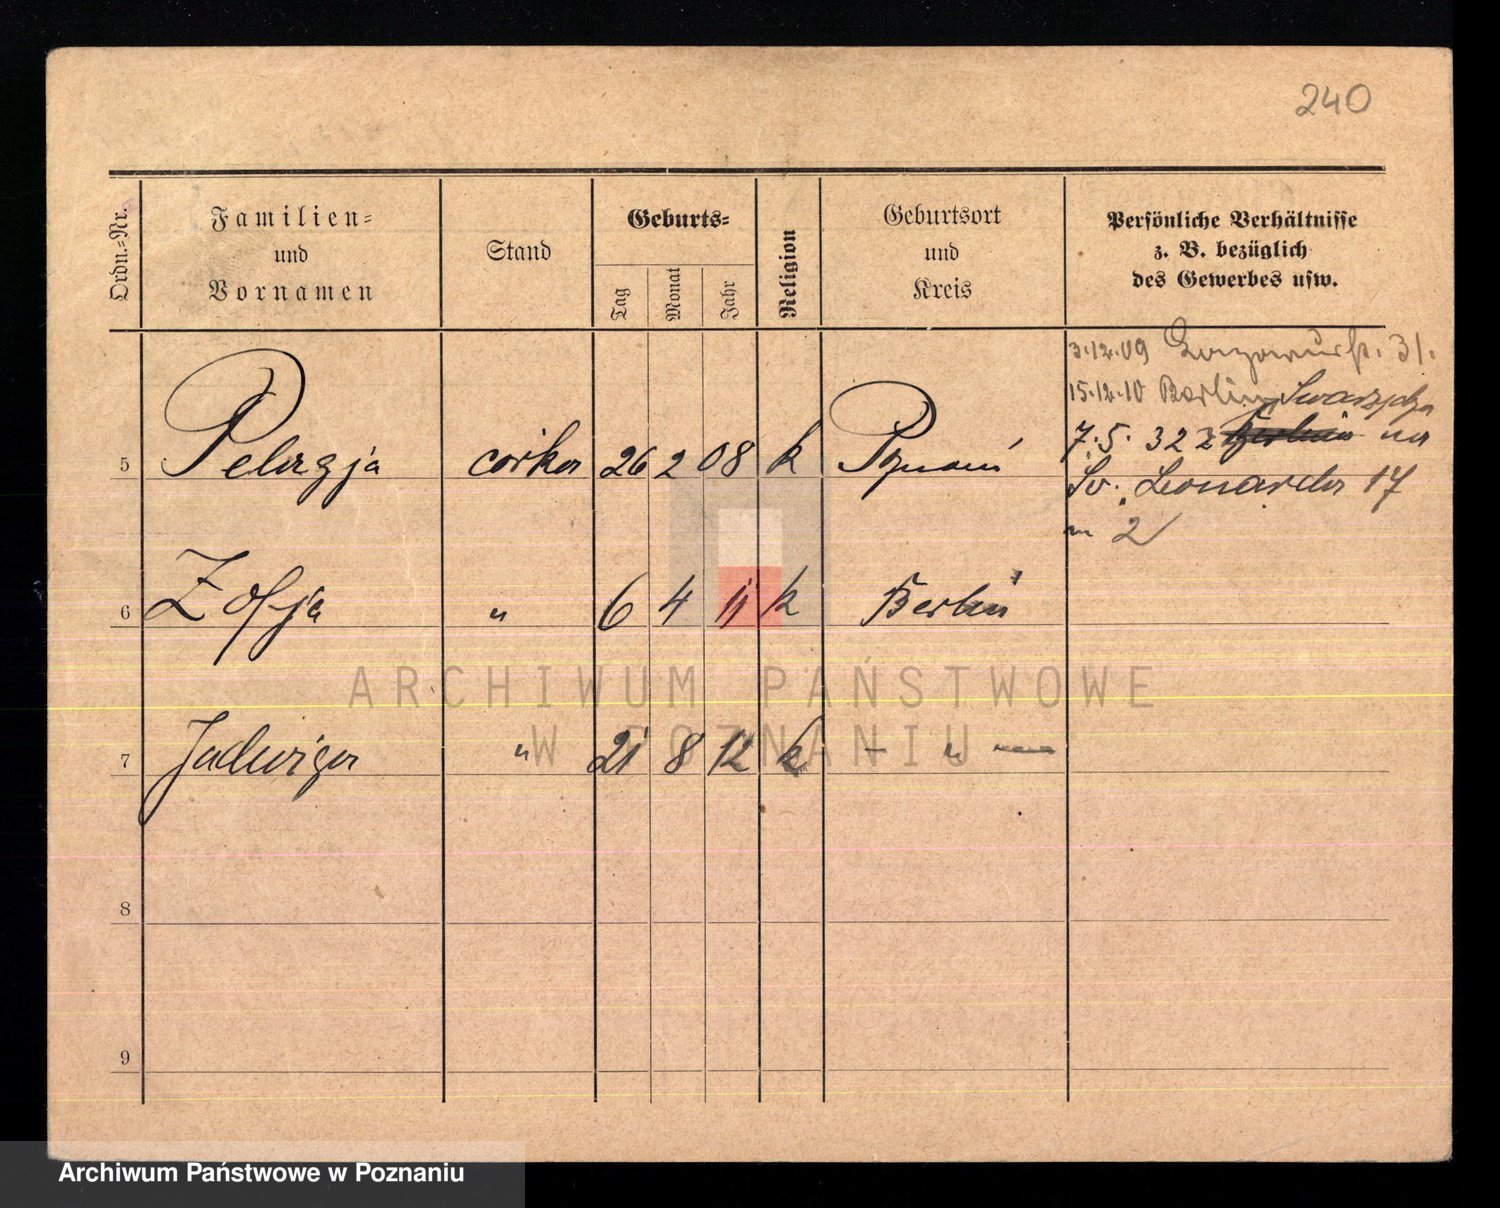 240
Ordn.=Nr.
Familien=
und
Vornamen
Stand
Geburts=
Tag
Monat
Jahr
Religion
Geburtsort
und
Kreis
Persönliche Verhältnisse
z. B. bezüglich
des Gewerbes usw.
3.12.09 31.
15.12.10 Berlin
7.5.32 z Berlin na
Św. Leonarda 17
m 2
5 Pelagja córka 26 2 08 k Poznań
6 Zofja " 6 4 11 k Berlin
7 Jadwiga " 21 8 12 k — " —
8
9
ARCHIWUM PAŃSTWOWE
W POZNANIU
Archiwum Państwowe w Poznaniu